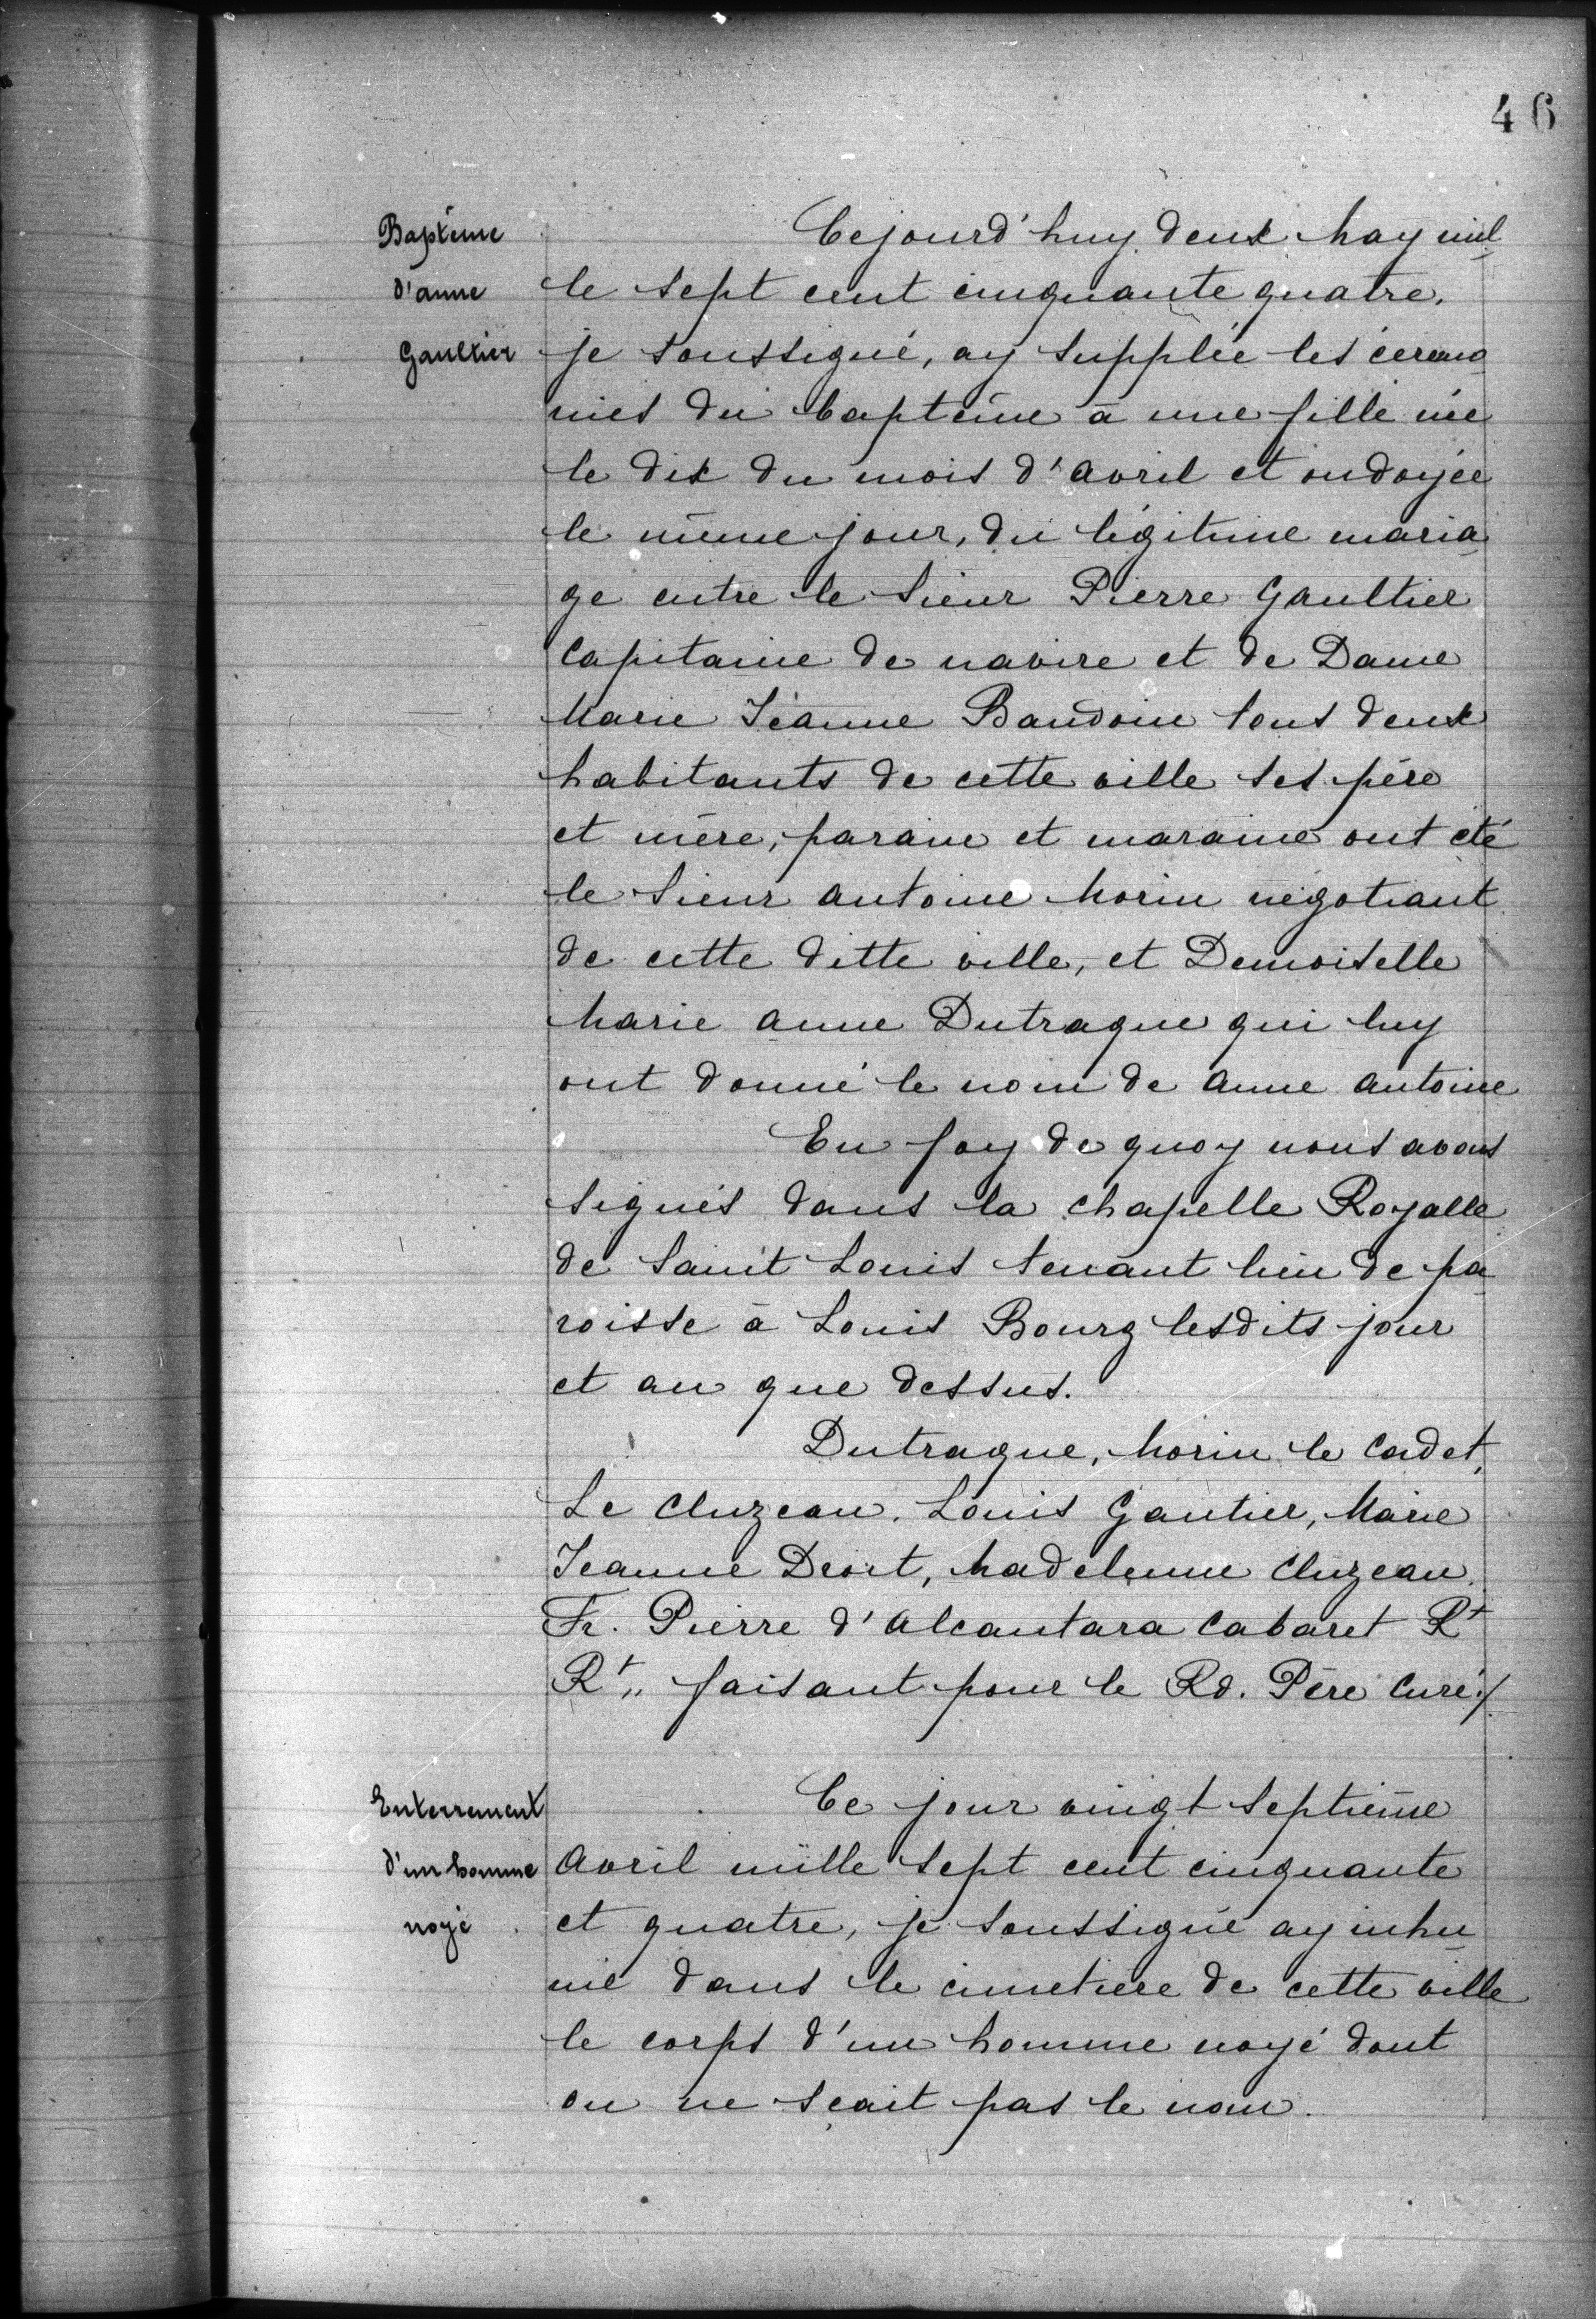 46
Baptême
d'anne
Gaultier
Cejourd'huy deux May mil
le sept cent cinquante quatre.
je soussigné, ay supplée les cérémo
nies du baptême à une fille née
le dix du mois d'avril et ondoyée
le même jour, du légitime maria
ge entre le Sieur Pierre Gaultier
Capitaine de navire et de Dame
Marie Jéanne Baudoin tous deux
habitants de cette ville ses père
et mère, parain et maraine ont été
le Sieur antoine Morin négotiant
de cette ditte ville, et Demoiselle
Marie anne Dutraque qui luy
ont donné le nom de anne antoine
En foy de quoy nous avons
signés dans la chapelle Royalle
de Saint Louis tenant lieu de pa
roisse à Louis Bourg lesdits jour
et an que dessus.
Dutraque, Morin le Cadet,
Le Cluzeau. Louis Gautier, Marie
Jeanne Droit, Madelenne Cluzeau.
Fr. Pierre d'Alcantara Cabaret Rt
Rt,, faisant pour le Rd. Père Curé./.
Enterrement
d'un homme
noyé
Ce jour vingt septième
Avril mille sept cent cinquante
et quatre, je soussigné ay inhu
mé dans le cimetière de cette ville
le corps d'un homme noyé dont
on ne sçait pas le nom.